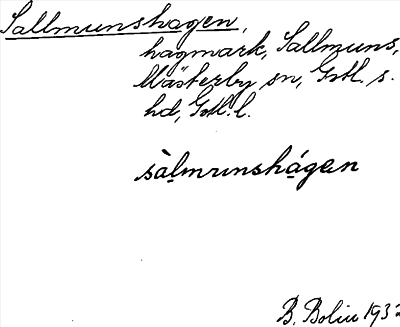 Sallmunshagen,
hagmark, Sallmuns,
Västerby sn, Gotl. s.
hd, Gotl. l.
sàl̥munshá̱gen
B. Bolin 1932